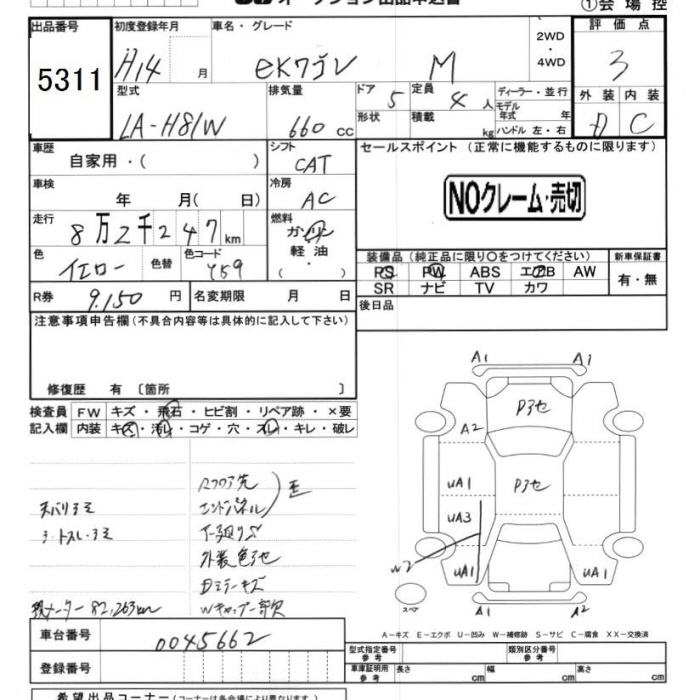 オークション出品申込書
①会場控
出品番号 初度登録年月 車名・グレード 評価点
5311 H14 月 eKワゴン M 2WD ・ 4WD 3
型式 排気量 ドア 5 定員 4 人 ディーラー・並行 外装 内装
LA-H81W 660 cc 形状 積載 kg モデル年式 年 D C
ハンドル 左・右
車歴 シフト セールスポイント (正常に機能するものに限ります)
自家用・( ) CAT
車検 冷房 NOクレーム・売切
年 月( 日) AC
走行 燃料
8万2千247km ガソリン
色 色替 色コード 軽油 装備品 (純正品に限り○をつけてください) 新車保証書
イエロー Y59 ・( ) PS PW ABS エアB AW 有・無
R券 9,150 円 名変期限 月 日 SR ナビ TV カワ
注意事項申告欄(不具合内容等は具体的に記入して下さい) 後日品
修復歴 有 〔箇所 〕
検査員 FW キズ・飛石・ヒビ割・リペア跡・×要
記入欄 内装 キズ・汚れ・コゲ・穴・スレ・キレ・破レ
A1 A1
Pヌケ
A2
UA1 Pヌケ
UA3
W2
UA1 UA1
スペア
A1 A2
エンドパネル
下廻りサビ
外装色アセ
ミラーキズ
現メーター 82,263km
Wキャップ一部欠
A-キズ E-エクボ U-凹み W-補修跡 S-サビ C-腐食 XX-交換済
車台番号 0045662
型式指定番号 参考 類別区分番号 参考
登録番号 車庫証明用 参考 長さ cm 幅 cm 高さ cm
希望出品コーナー(コーナーは各会場により異なります)